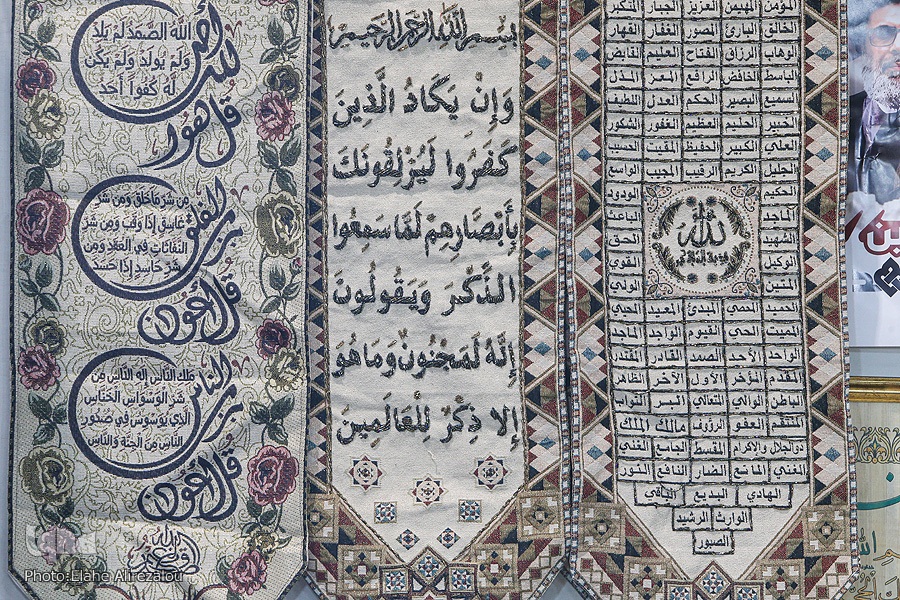 بسم الله الرحمن الرحيم
وَإِنْ يَكَادُ الَّذِينَ
كَفَرُوا لَيُزْلِقُونَكَ
بِأَبْصَارِهِمْ لَمَّا سَمِعُوا
الذِّكْرَ وَيَقُولُونَ
إِنَّهُ لَمَجْنُونٌ وَمَا هُوَ
إِلَّا ذِكْرٌ لِلْعَالَمِينَ
المؤمن المهيمن العزيز الجبار المتكبر
الخالق البارئ المصور الغفار القهار
الوهاب الرزاق الفتاح العليم القابض
الباسط الخافض الرافع المعز المذل
السميع البصير الحكم العدل اللطيف
الخبير الحليم العظيم الغفور الشكور
العلي الكبير الحفيظ المقيت الحسيب
الجليل الكريم الرقيب المجيب الواسع
الحكيم الودود
الماجد الباعث
الشهيد الحق
الوكيل القوي
المتين الولي
الله
المبدئ المعيد المحيي
المميت الحي القيوم الواجد الماجد
الواحد الأحد الصمد القادر المقتدر
المقدم المؤخر الأول الآخر الظاهر
الباطن الوالي المتعالي البر التواب
المنتقم العفو الرؤوف مالك الملك
ذوالجلال والإكرام المقسط الجامع الغني
المغني المانع الضار النافع النور
الهادي البديع الباقي
الوارث الرشيد
الصبور
الله الصمد لم يلد
ولم يولد ولم يكن
له كفوا أحد
قل هو
من شر ما خلق ومن شر
غاسق إذا وقب ومن شر
النفاثات في العقد ومن
شر حاسد إذا حسد
قل أعوذ برب الفلق
ملك الناس إله الناس من
شر الوسواس الخناس
الذي يوسوس في صدور
الناس من الجنة والناس
قل أعوذ برب الناس
Photo:Elahe Alirezalou